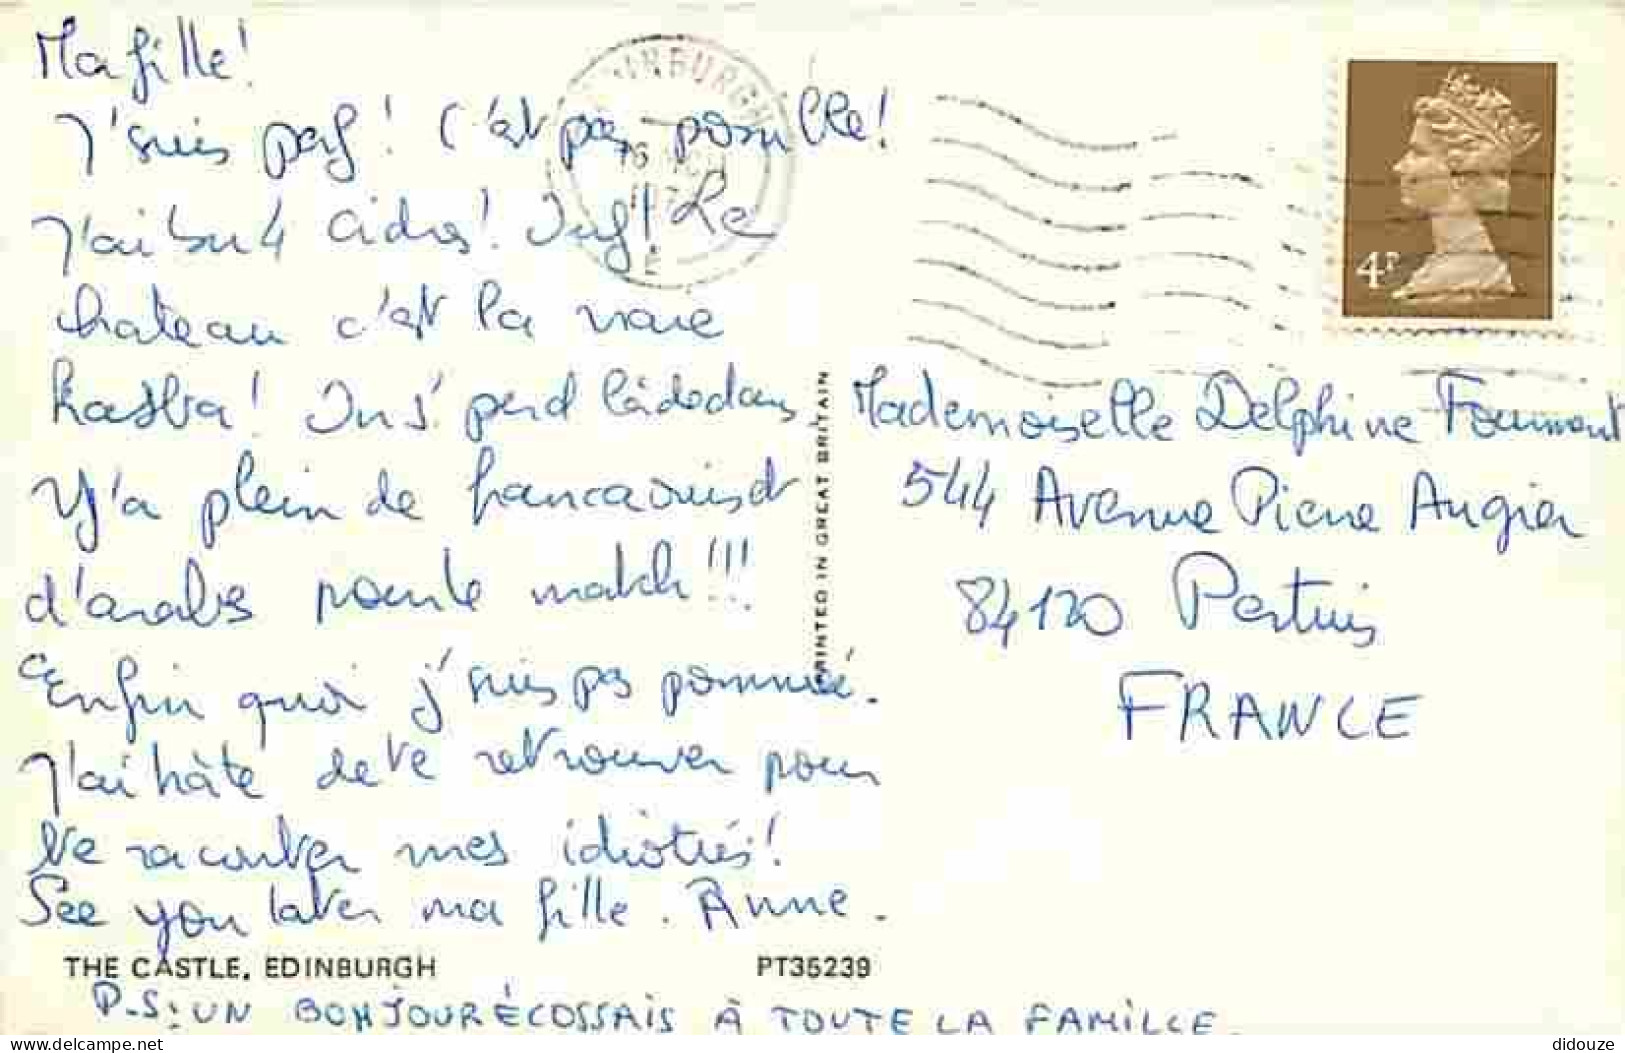 Ma fille!
J'suis paf! C'est pas possible!
J'ai bu 4 cidres! Ouf! Le
chateau c'est la vraie
kasba! On s'perd là dedans
Y'a plein de francaouis et
d'arabes pour le match!!!
Enfin quoi j'suis pas paumée.
J'ai hâte de te retrouver pour
te raconter mes idioties!
See you later ma fille. Anne.
THE CASTLE, EDINBURGH
PT35239
P.S: UN BONJOUR ÉCOSSAIS À TOUTE LA FAMILLE.
PRINTED IN GREAT BRITAIN
EDINBURGH
4P
Mademoiselle Delphine
544 Avenue Pierre Augier
84120 Pertuis
FRANCE
https://www.delcampe.net
didouze